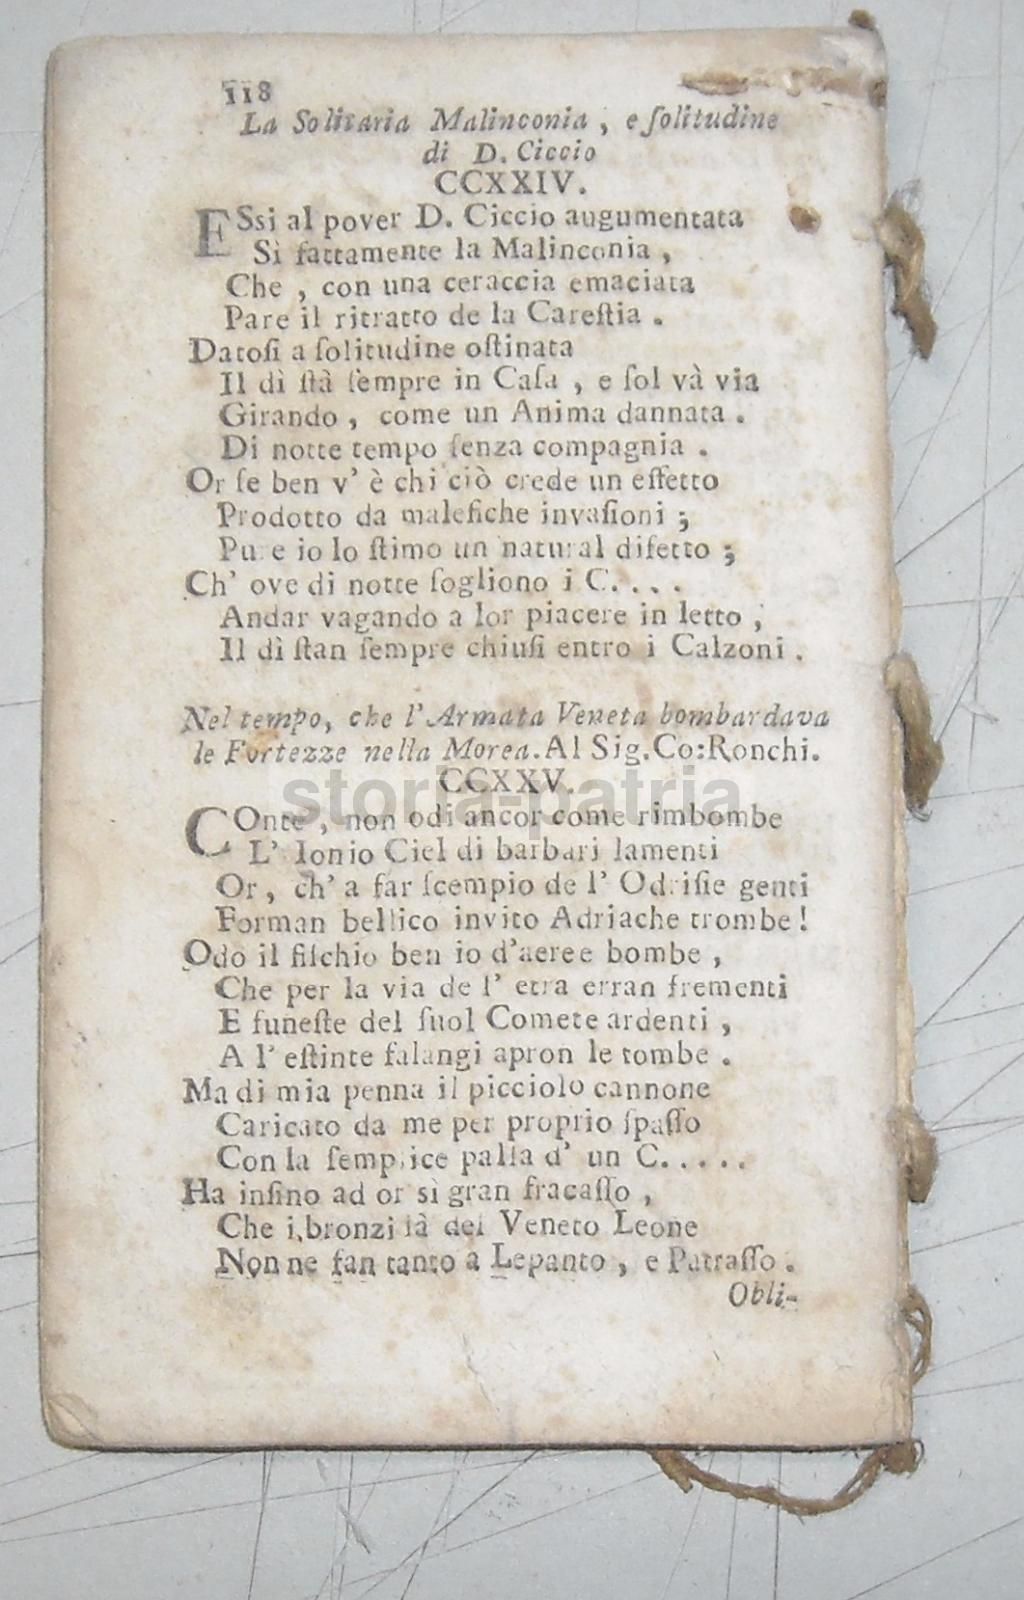 118
La Solitaria Malinconia, e ſolitudine
di D. Ciccio
CCXXIV.
ESsi al pover D. Ciccio augumentata
Sì fattamente la Malinconia,
Che, con una ceraccia emaciata
Pare il ritratto de la Careſtia.
Datoſi a ſolitudine oſtinata
Il dì ſtà ſempre in Caſa, e ſol và via
Girando, come un Anima dannata.
Di notte tempo ſenza compagnia.
Or ſe ben v' è chi ciò crede un effetto
Prodotto da malefiche invaſioni;
Pure io lo ſtimo un natural difetto;
Ch' ove di notte ſogliono i C....
Andar vagando a lor piacere in letto,
Il dì ſtan ſempre chiuſi entro i Calzoni.
Nel tempo, che l'Armata Veneta bombardava
le Fortezze nella Morea. Al Sig. Co: Ronchi.
CCXXV.
storia-patria
COnte, non odi ancor come rimbombe
L' Ionio Ciel di barbari lamenti
Or, ch' a far ſcempio de l' Odriſie genti
Forman bellico invito Adriache trombe!
Odo il fiſchio ben io d'aeree bombe,
Che per la via de l' etra erran frementi
E funeſte del ſuol Comete ardenti,
A l' eſtinte falangi apron le tombe.
Ma di mia penna il picciolo cannone
Caricato da me per proprio ſpaſſo
Con la ſemplice palla d' un C.....
Ha inſino ad or sì gran fracaſſo,
Che i bronzi là del Veneto Leone
Non ne fan tanto a Lepanto, e Patraſſo.
Obli-